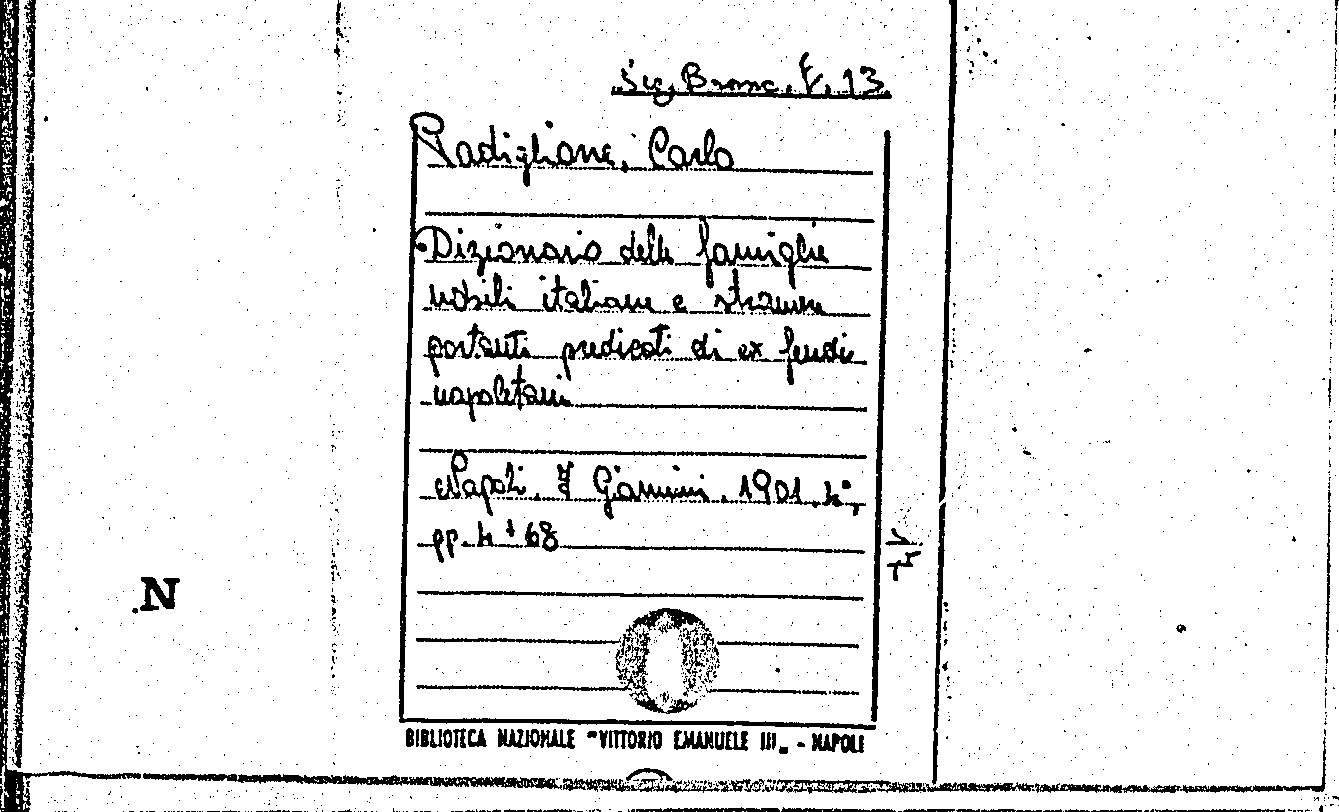 Sez. Branc. F. 13
Padiglione, Carlo
Dizionario delle famiglie
nobili italiane e straniere
portanti predicati di ex feudi
napoletani
Napoli, F Giannini, 1901, 4°,
pp. 4 + 68
.N
BIBLIOTECA NAZIONALE "VITTORIO EMANUELE III„ - NAPOLI